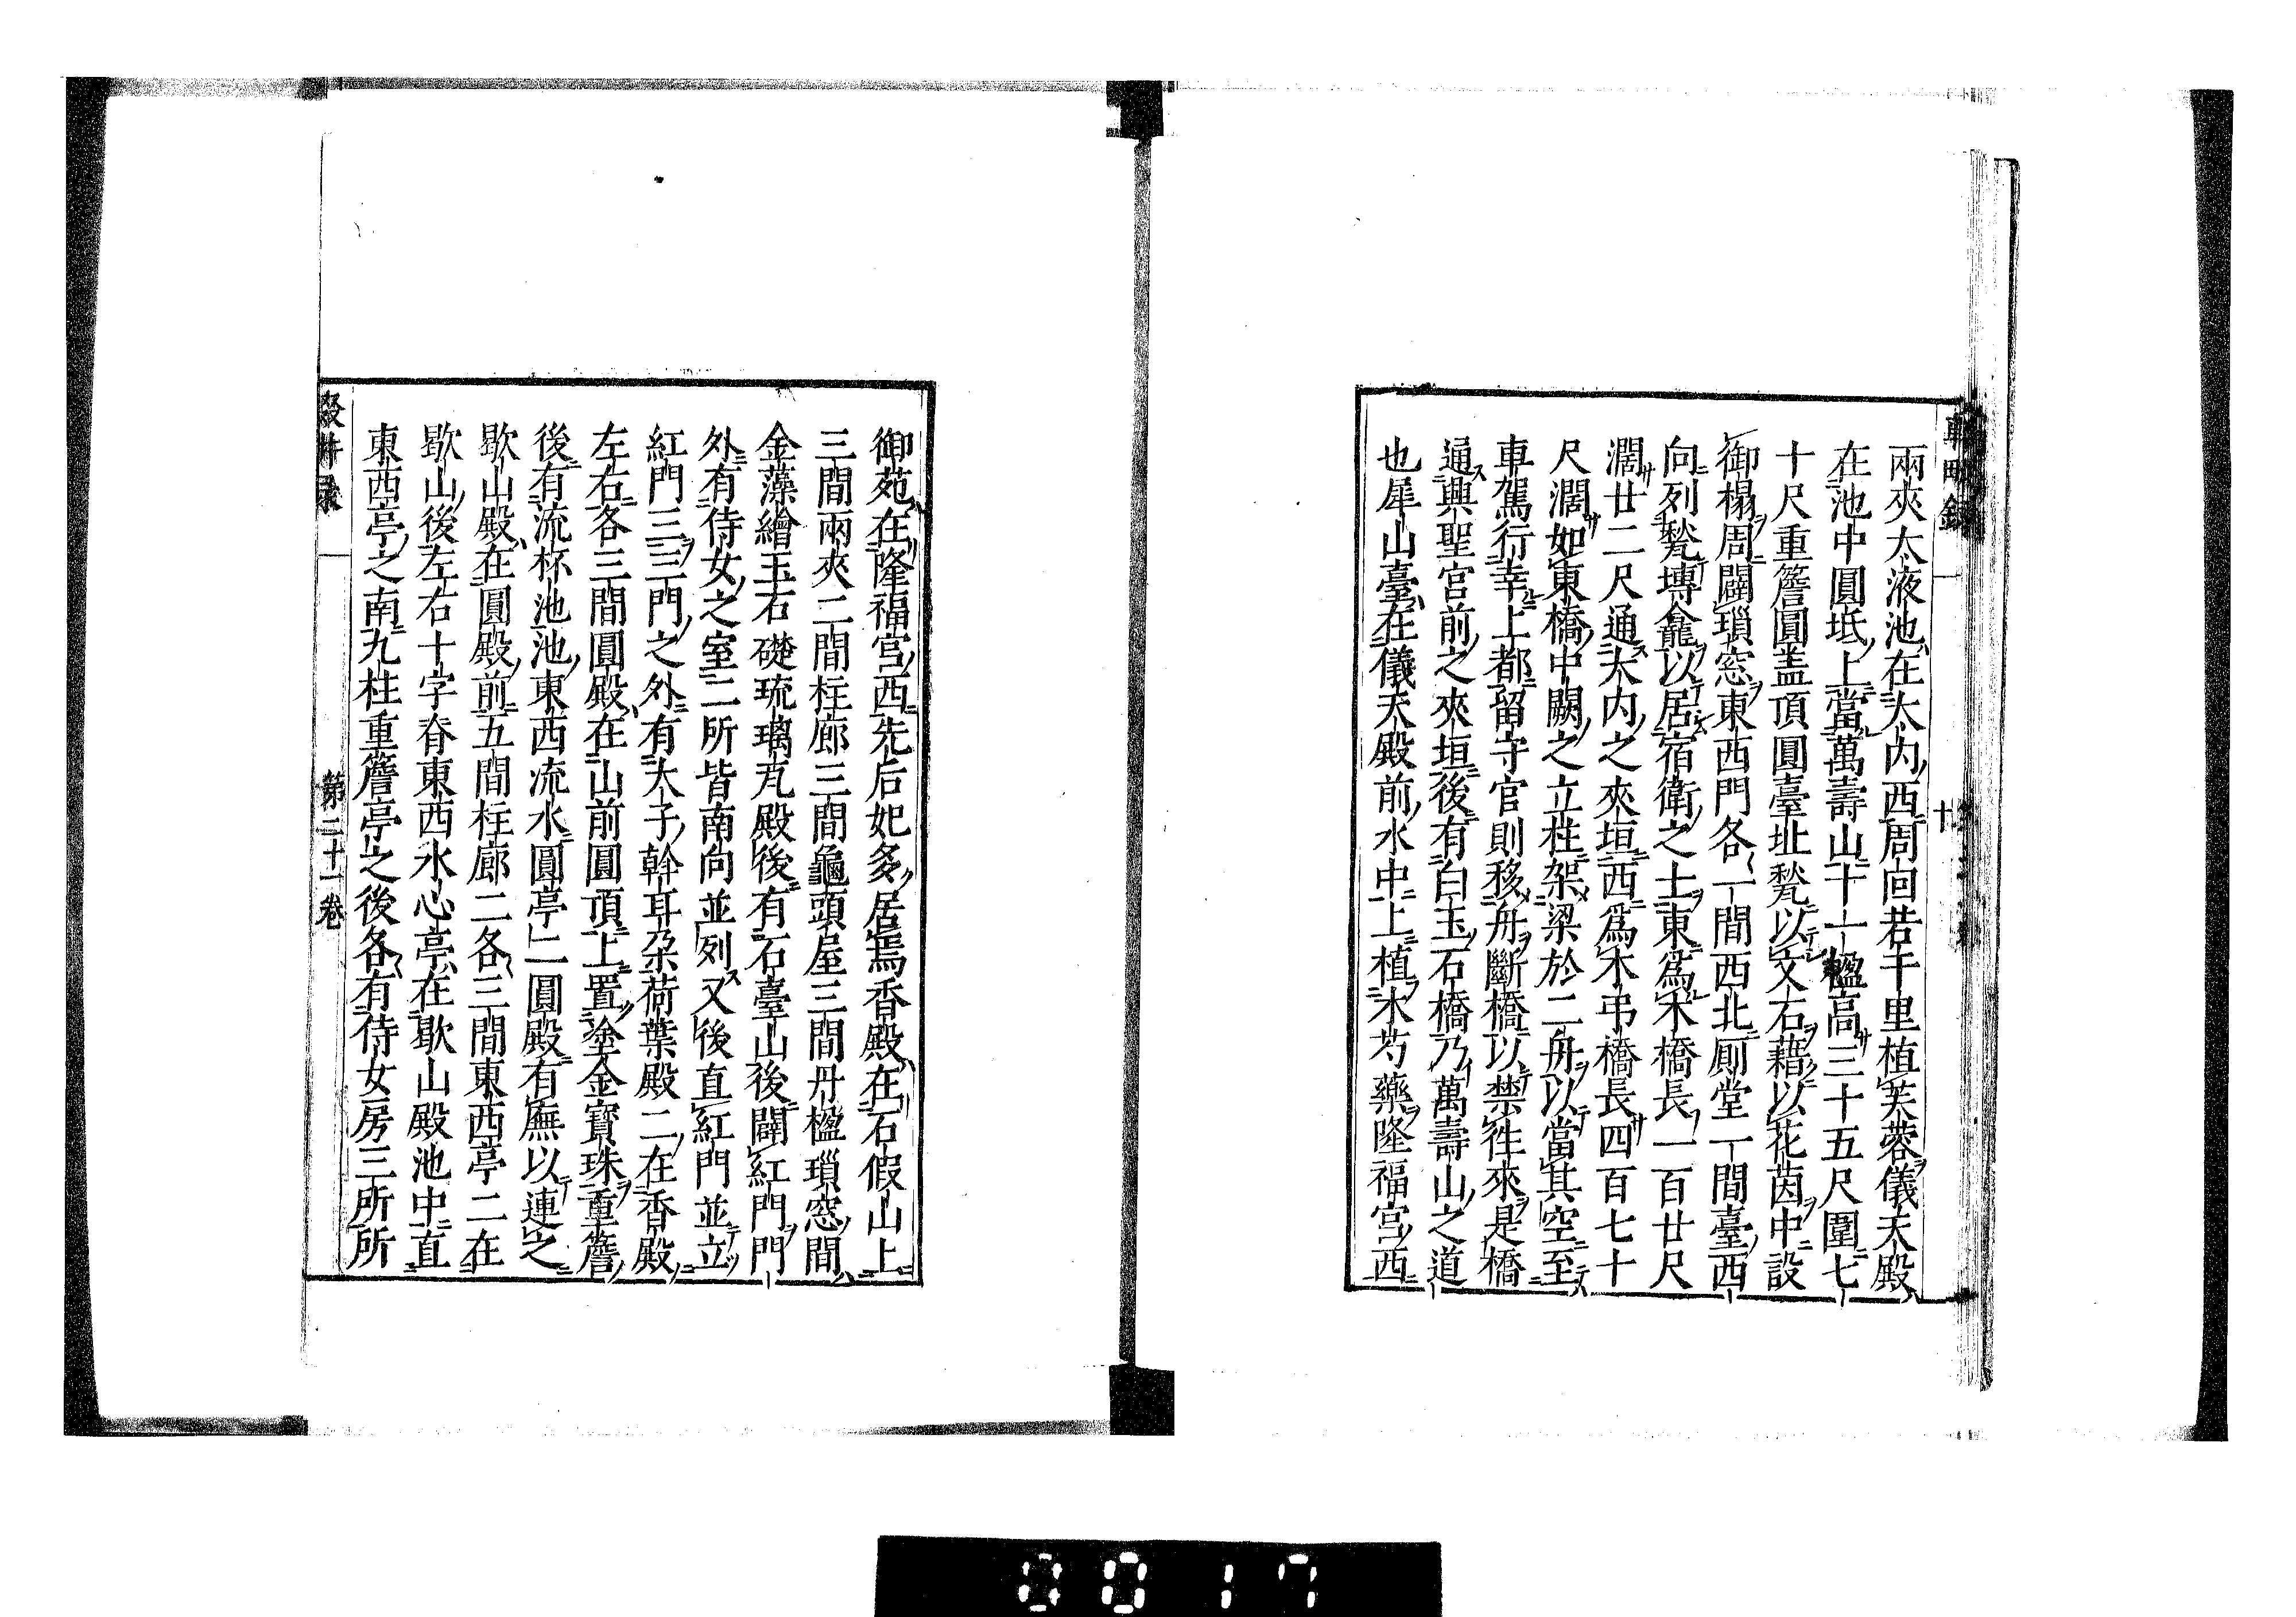 兩夾太液池在大内西周回若干里植芙蓉儀天殿
在池中圓坻上當萬壽山十一楹高三十五尺圍七
十尺重簷圓盖頂圓臺址甃以文石藉以花茵中設
御榻周闢瑣窓東西門各一間西北厠堂一間臺西
向列甃塼龕以居宿衛之士東爲木橋長一百廿尺
濶廿二尺通大内之夾垣西爲木弔橋長四百七十
尺濶如東橋中闕之立柱架梁於二舟以當其空至
車駕行幸上都留守官則移舟斷橋以禁徃來是橋
通興聖宫前之夾垣後有白玉石橋乃萬壽山之道
也犀山臺在儀天殿前水中上植木芍藥隆福宫西
御苑在隆福宫西先后妃多居焉香殿在石假山上
三間兩夾二間柱廊三間龜頭屋三間丹楹瑣窓間
金藻繪玉石礎琉璃瓦殿後有石臺山後闢紅門門
外有侍女之室二所皆南向並列又後直紅門並立
紅門三三門之外有太子斡耳朶荷葉殿二在香殿
左右各三間圓殿在山前圓頂上置塗金寳珠重簷
後有流杯池池東西流水圓亭二圓殿有廡以連之
歇山殿在圓殿前五間柱廊二各三間東西亭二在
歇山後左右十字脊東西水心亭在歇山殿池中直
東西亭之南九柱重簷亭之後各有侍女房三所所
第二十一卷